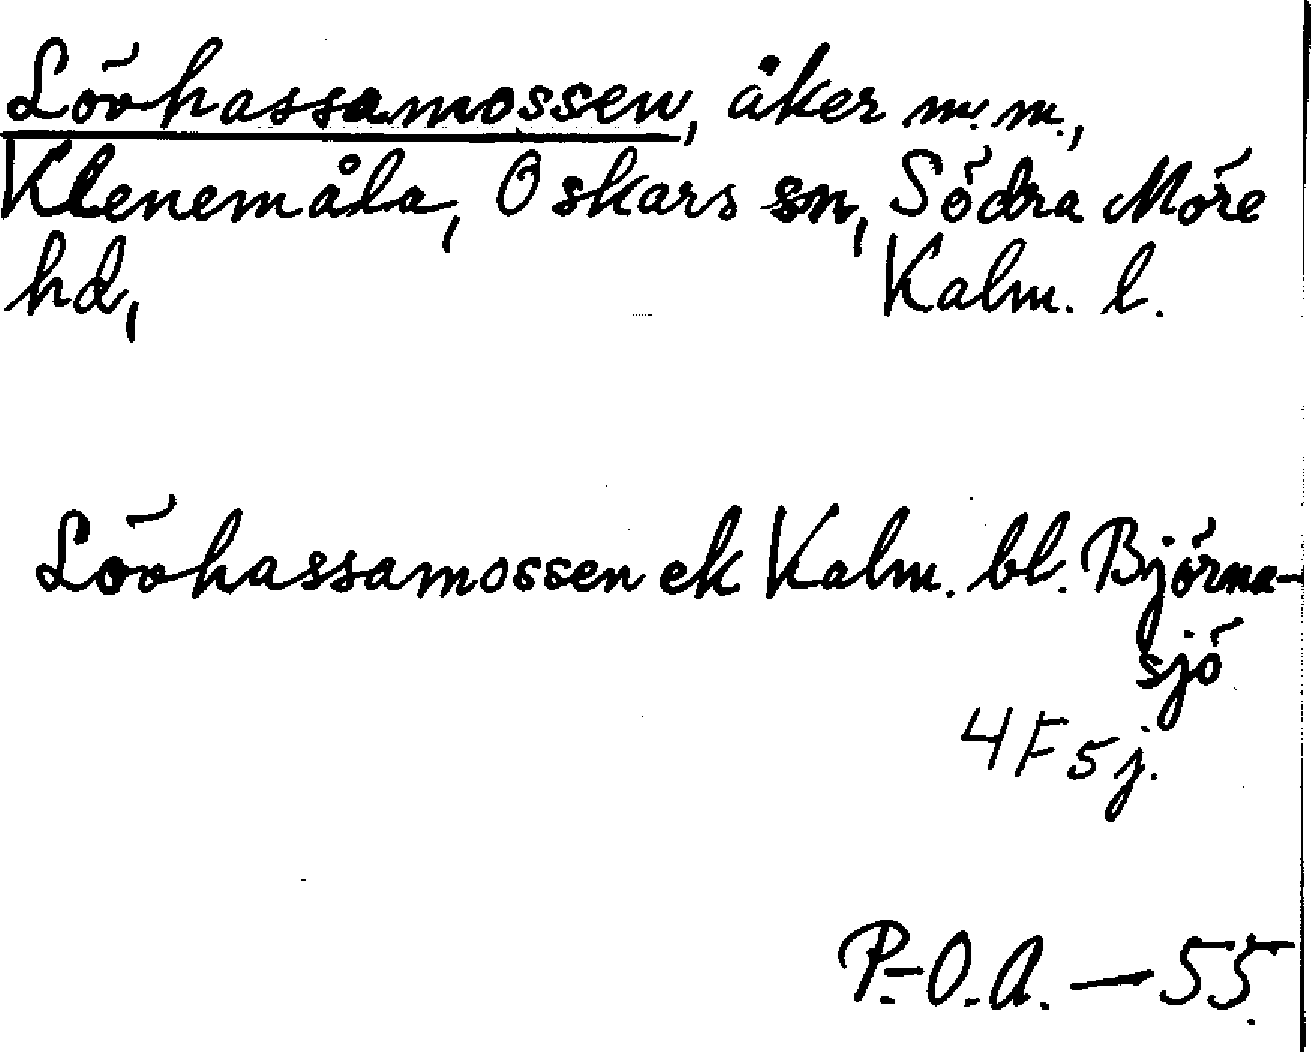 Lövhassamossen, åker m.m.,
Klenemåla, Oskars sn, Södra Möre
hd, Kalm. l.
Lövhassamossen ek Kalm. bl. Björna-
sjö
4F5j.
P.-O.A. — 55.